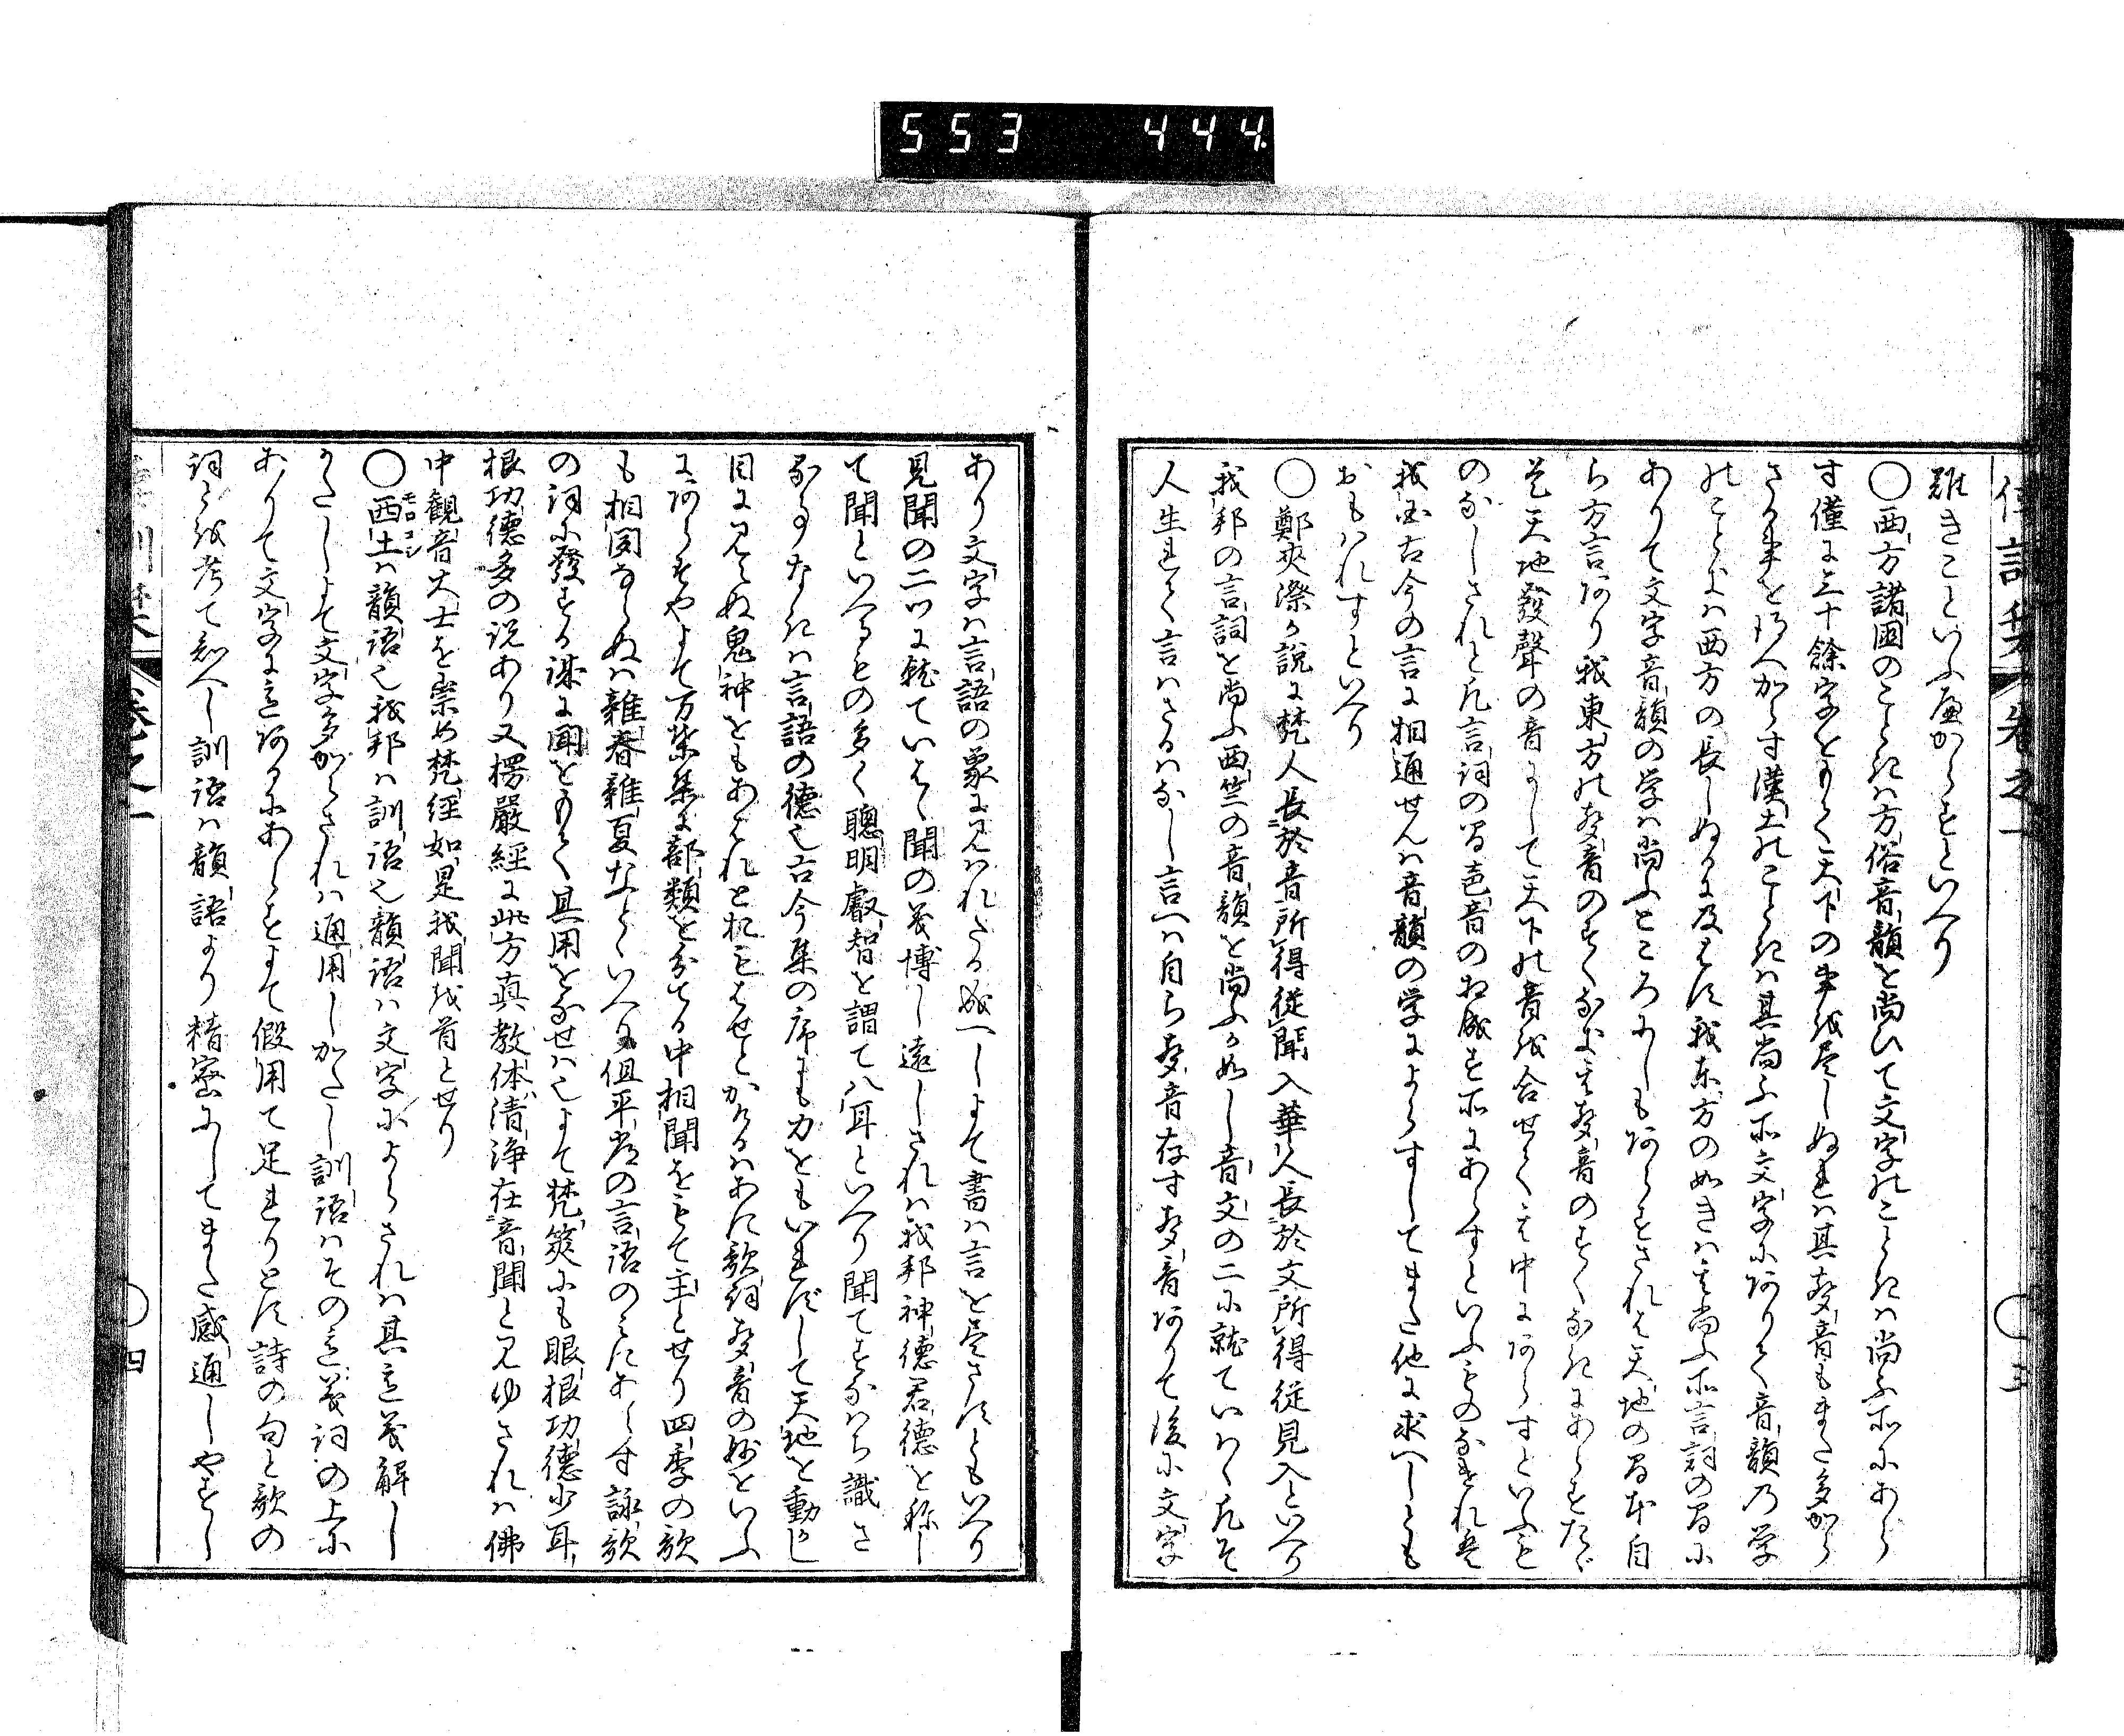 553 444
倭訓栞 卷之一 三
難きことといふ尓からすといへり
〇西方諸國のことは方俗音韻を尚ひて文字のことは尚ふ所にあら
す僅に三十餘字をもて天下の事を尽しぬれは其聲音もまた多から
さる事をしへからす漢土のことは其尚ふ所文字にありて音韻乃学
のことは西方の長しぬるに及はす我東方の如きは其尚ふ所言詞の間に
ありて文字音韻の学は尚ふところにしもあらすされと天地の間本自
ら方言あり我東方の聲音のすくなきは聲音のすくなきにあらすたゝ
是天地發聲の音にして天下の音を合せて其中にあらすといふも
のなしされと凡言詞の間声音の相成す所にあらすといふものなけれは
我国古今の言に相通せんは音韻の学によらすしてまた他に求へしとも
おもはれすといへり
〇鄭夾漈の說に梵人長於音所得從聞入華人長於文所得從見入といへり
我邦の言詞を尚ふ西竺の音韻を尚ふか如し音文の二に就ていはゝ凡そ
人生れて言はさるはなし言へは自ら聲音存す聲音ありて後に文字
あり文字は言語の象に見はれたる成へしよて書は言を尽さすともいへり
見聞の二ツに就ていはゝ聞の義博し遠しされは我邦神德君德を称し
て聞といへるもの多く聰明叡智を謂て八耳といへり聞てすなはち識さ
るみなきは言語の德也古今集の序にも力をもいれすして天地を動かし
目に見えぬ鬼神をもあはれとおもはせとかけるはあに歌詞聲音の妙をいふ
にあらすやよて万葉集に部類を分てる中相聞をもて主とせり四季の歌
も相聞ならぬは雜春雜夏なとゝいへは但平常の言語のみにあらす詠歌
の詞に發する謀に聞をもて其用をなせは也よて梵筴にも眼根功德少耳
根功德多の說あり又楞嚴經に此方真教体清浄在音聞と見ゆされは佛
中觀音大士を崇め梵經如是我聞を首とせり
〇西土ハ韻語也我邦は訓語也韻語は文字によらされは其意義解し
かたしよて文字多からされは通用しかたし訓語はその意義詞の上に
ありて文字に意あるにあらすよて假用て足れりとす詩の句と歌の
詞とを考て知へし訓語は韻語より精密にしてまた感通しやすし
モロコシ
卷之一 四